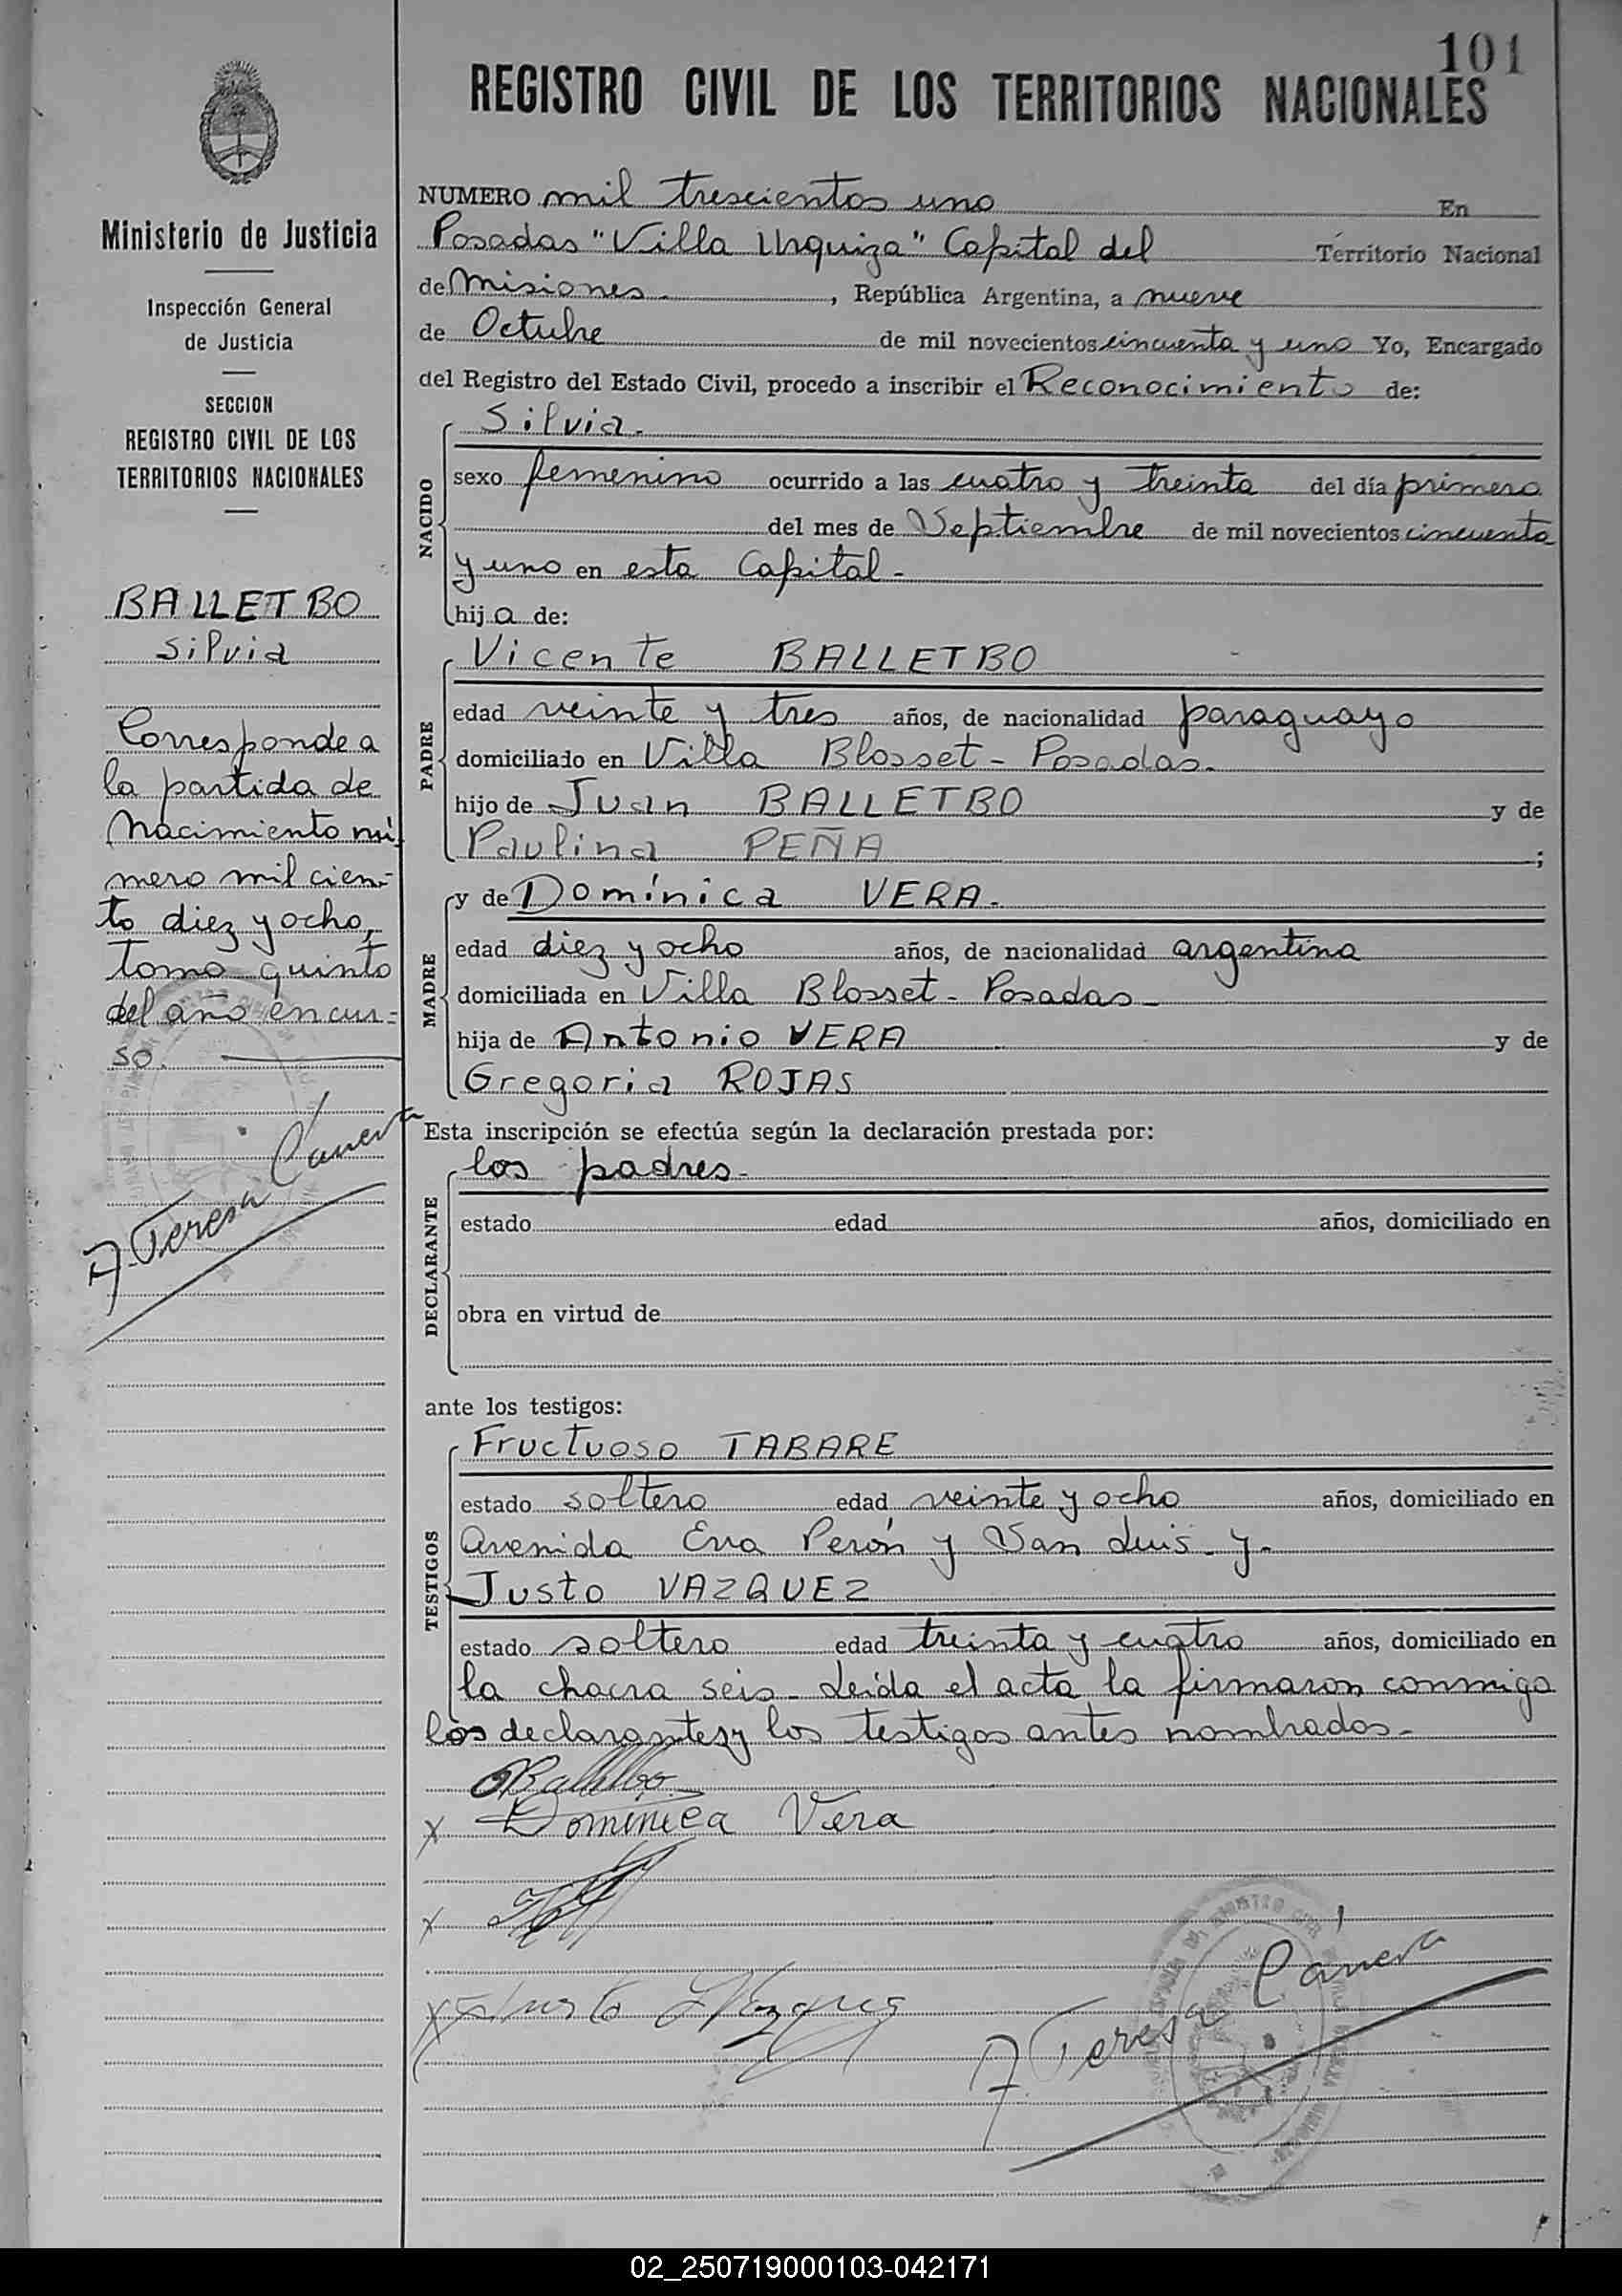 101
REGISTRO CIVIL DE LOS TERRITORIOS NACIONALES
Ministerio de Justicia
Inspección General
de Justicia
SECCION
REGISTRO CIVIL DE LOS
TERRITORIOS NACIONALES
BALLETBO
Silvia
Corresponde a
la partida de
Nacimiento nú
mero mil cien-
to diez y ocho,
Tomo quinto
del año en cur=
so.
A. Teresa Cáneva
NUMERO mil trescientos uno En
Posadas "Villa Urquiza" Capital del Territorio Nacional
de Misiones. , República Argentina, a nueve
de Octubre de mil novecientos cincuenta y uno Yo, Encargado
del Registro del Estado Civil, procedo a inscribir el Reconocimiento de:
NACIDO
Silvia.
sexo femenino ocurrido a las cuatro y treinta del día primero
del mes de Septiembre de mil novecientos cincuenta
y uno en esta Capital-
hija de:
PADRE
Vicente BALLETBO
edad veinte y tres años, de nacionalidad paraguayo
domiciliado en Villa Blosset - Posadas.
hijo de Juan BALLETBO y de
Paulina PEÑA ;
MADRE
y de Domínica VERA.
edad diez y ocho años, de nacionalidad argentina
domiciliada en Villa Blosset - Posadas-
hija de Antonio VERA y de
Gregoria ROJAS
Esta inscripción se efectúa según la declaración prestada por:
DECLARANTE
los padres-
estado edad años, domiciliado en
obra en virtud de
ante los testigos:
TESTIGOS
Fructuoso TABARE
estado soltero edad veinte y ocho años, domiciliado en
Avenida Eva Perón y San Luis - y-
Justo VAZQUEZ
estado soltero edad treinta y cuatro años, domiciliado en
la chacra seis - Leída el acta la firmaron conmigo
los declarantes y los testigos antes nombrados-
x Dominica Vera
x
x Justo Vázquez
A. Teresa Cáneva
02_250719000103-042171